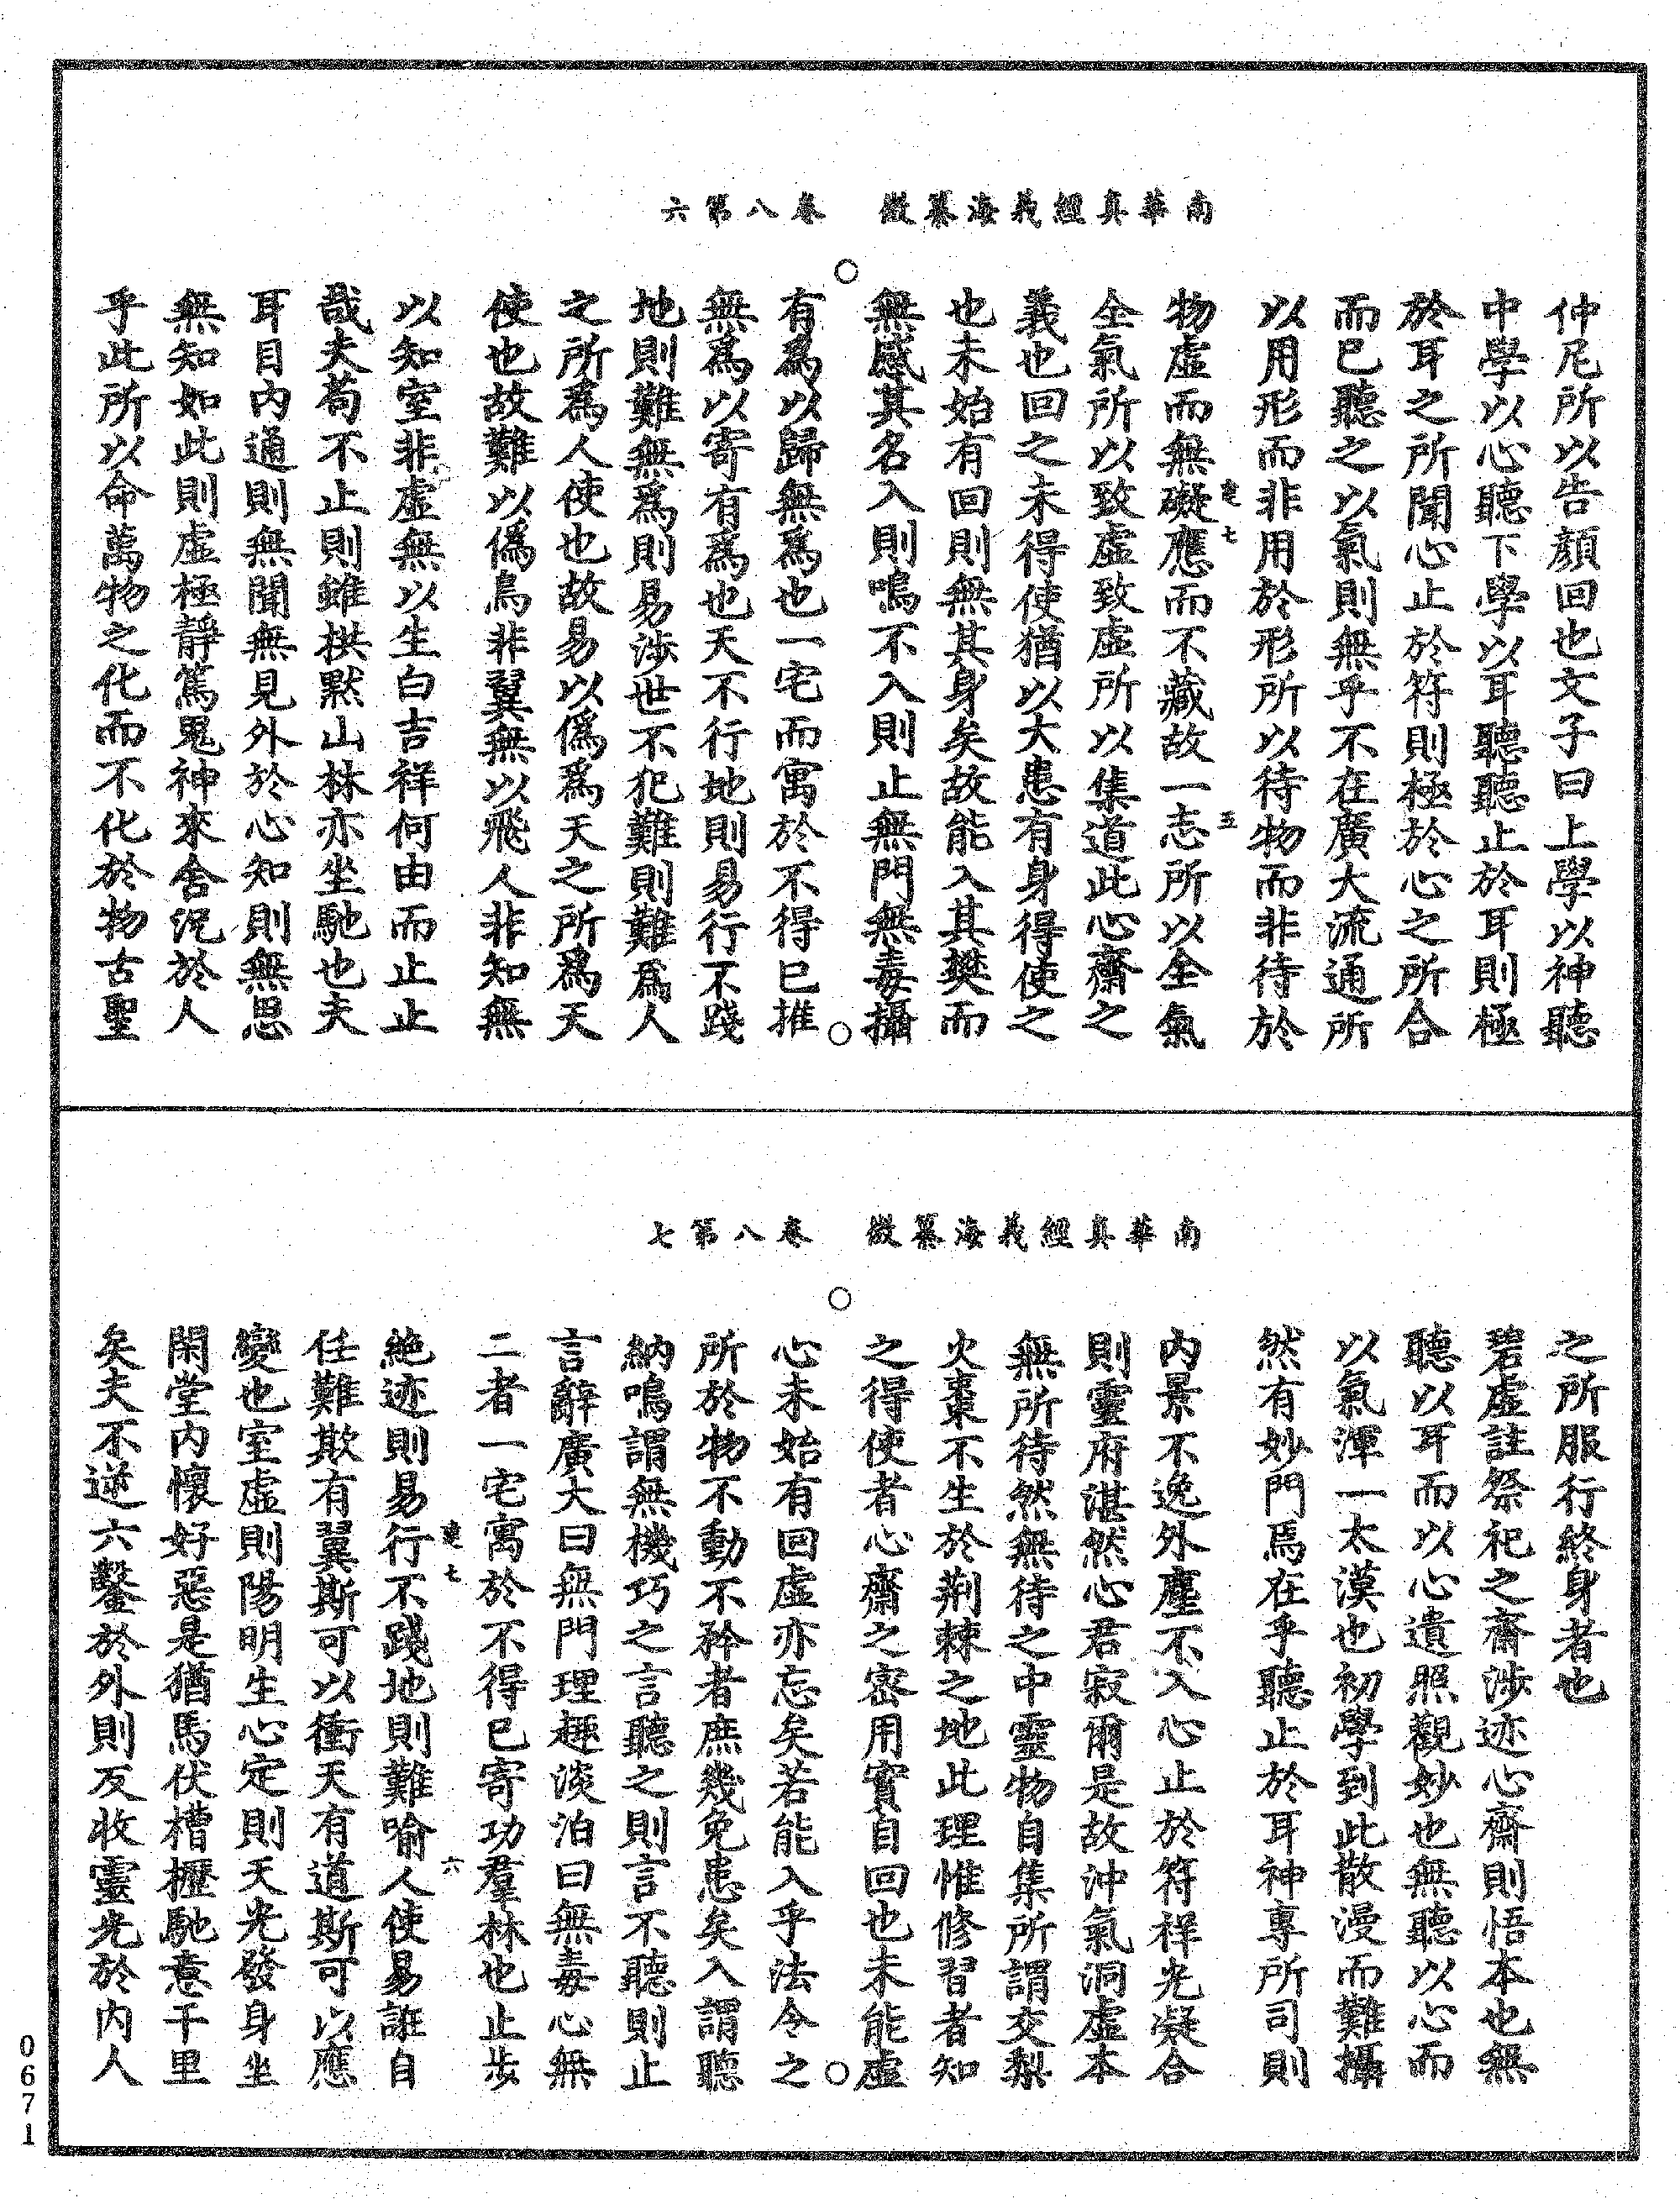 南華真經義海纂微　卷八第六
仲尼所以告顔回也文子曰上學以神聽
中學以心聽下學以耳聽聽止於耳則極
於耳之所聞心止於符則極於心之所合
而已聽之以氣則無乎不在廣大流通所
以用形而非用於形所以待物而非待於
物虛而無礙應而不藏故一志所以全氣
全氣所以致虛致虛所以集道此心齋之
義也回之未得使猶以大患有身得使之
也未始有回則無其身矣故能入其樊而
無感其名入則鳴不入則止無門無毒攝
有爲以歸無爲也一宅而寓於不得已推
無爲以寄有爲也天不行地則易行不踐
地則難無爲則易涉世不犯難則難爲人
之所爲人使也故易以僞爲天之所爲天
使也故難以僞鳥非翼無以飛人非知無
以知室非虛無以生白吉祥何由而止止
哉夫苟不止則雖栱默山林亦坐馳也夫
耳目內通則無聞無見外於心知則無思
無知如此則虛極靜篤鬼神來舍況於人
乎此所以命萬物之化而不化於物古聖
南華真經義海纂微　卷八第七
之所服行終身者也
碧虛註祭祀之齋涉迹心齋則悟本也無
聽以耳而以心遺照觀妙也無聽以心而
以氣渾一太漠也初學到此散漫而難攝
然有妙門焉在乎聽止於耳神專所司則
內景不逸外塵不入心止於符祥光凝合
則靈府湛然心君寂爾是故沖氣洞虛本
無所待然無待之中靈物自集所謂交梨
火棗不生於荆棘之地此理惟修習者知
之得使者心齋之密用實自回也未能虛
心未始有回虛亦忘矣若能入乎法令之
所於物不動不矜者庶幾免患矣入謂聽
納鳴謂無機巧之言聽之則言不聽則止
言辭廣大曰無門理趣淡泊曰無毒心無
二者一宅寓於不得已寄功羣林也止步
絶迹則易行不踐地則難喻人使易誑自
任難欺有翼斯可以衝天有道斯可以應
變也室虛則陽明生心定則天光發身坐
閑堂內懷好惡是猶馬伏槽櫪馳意千里
矣夫不逆六鑿於外則反收靈光於內人
0671